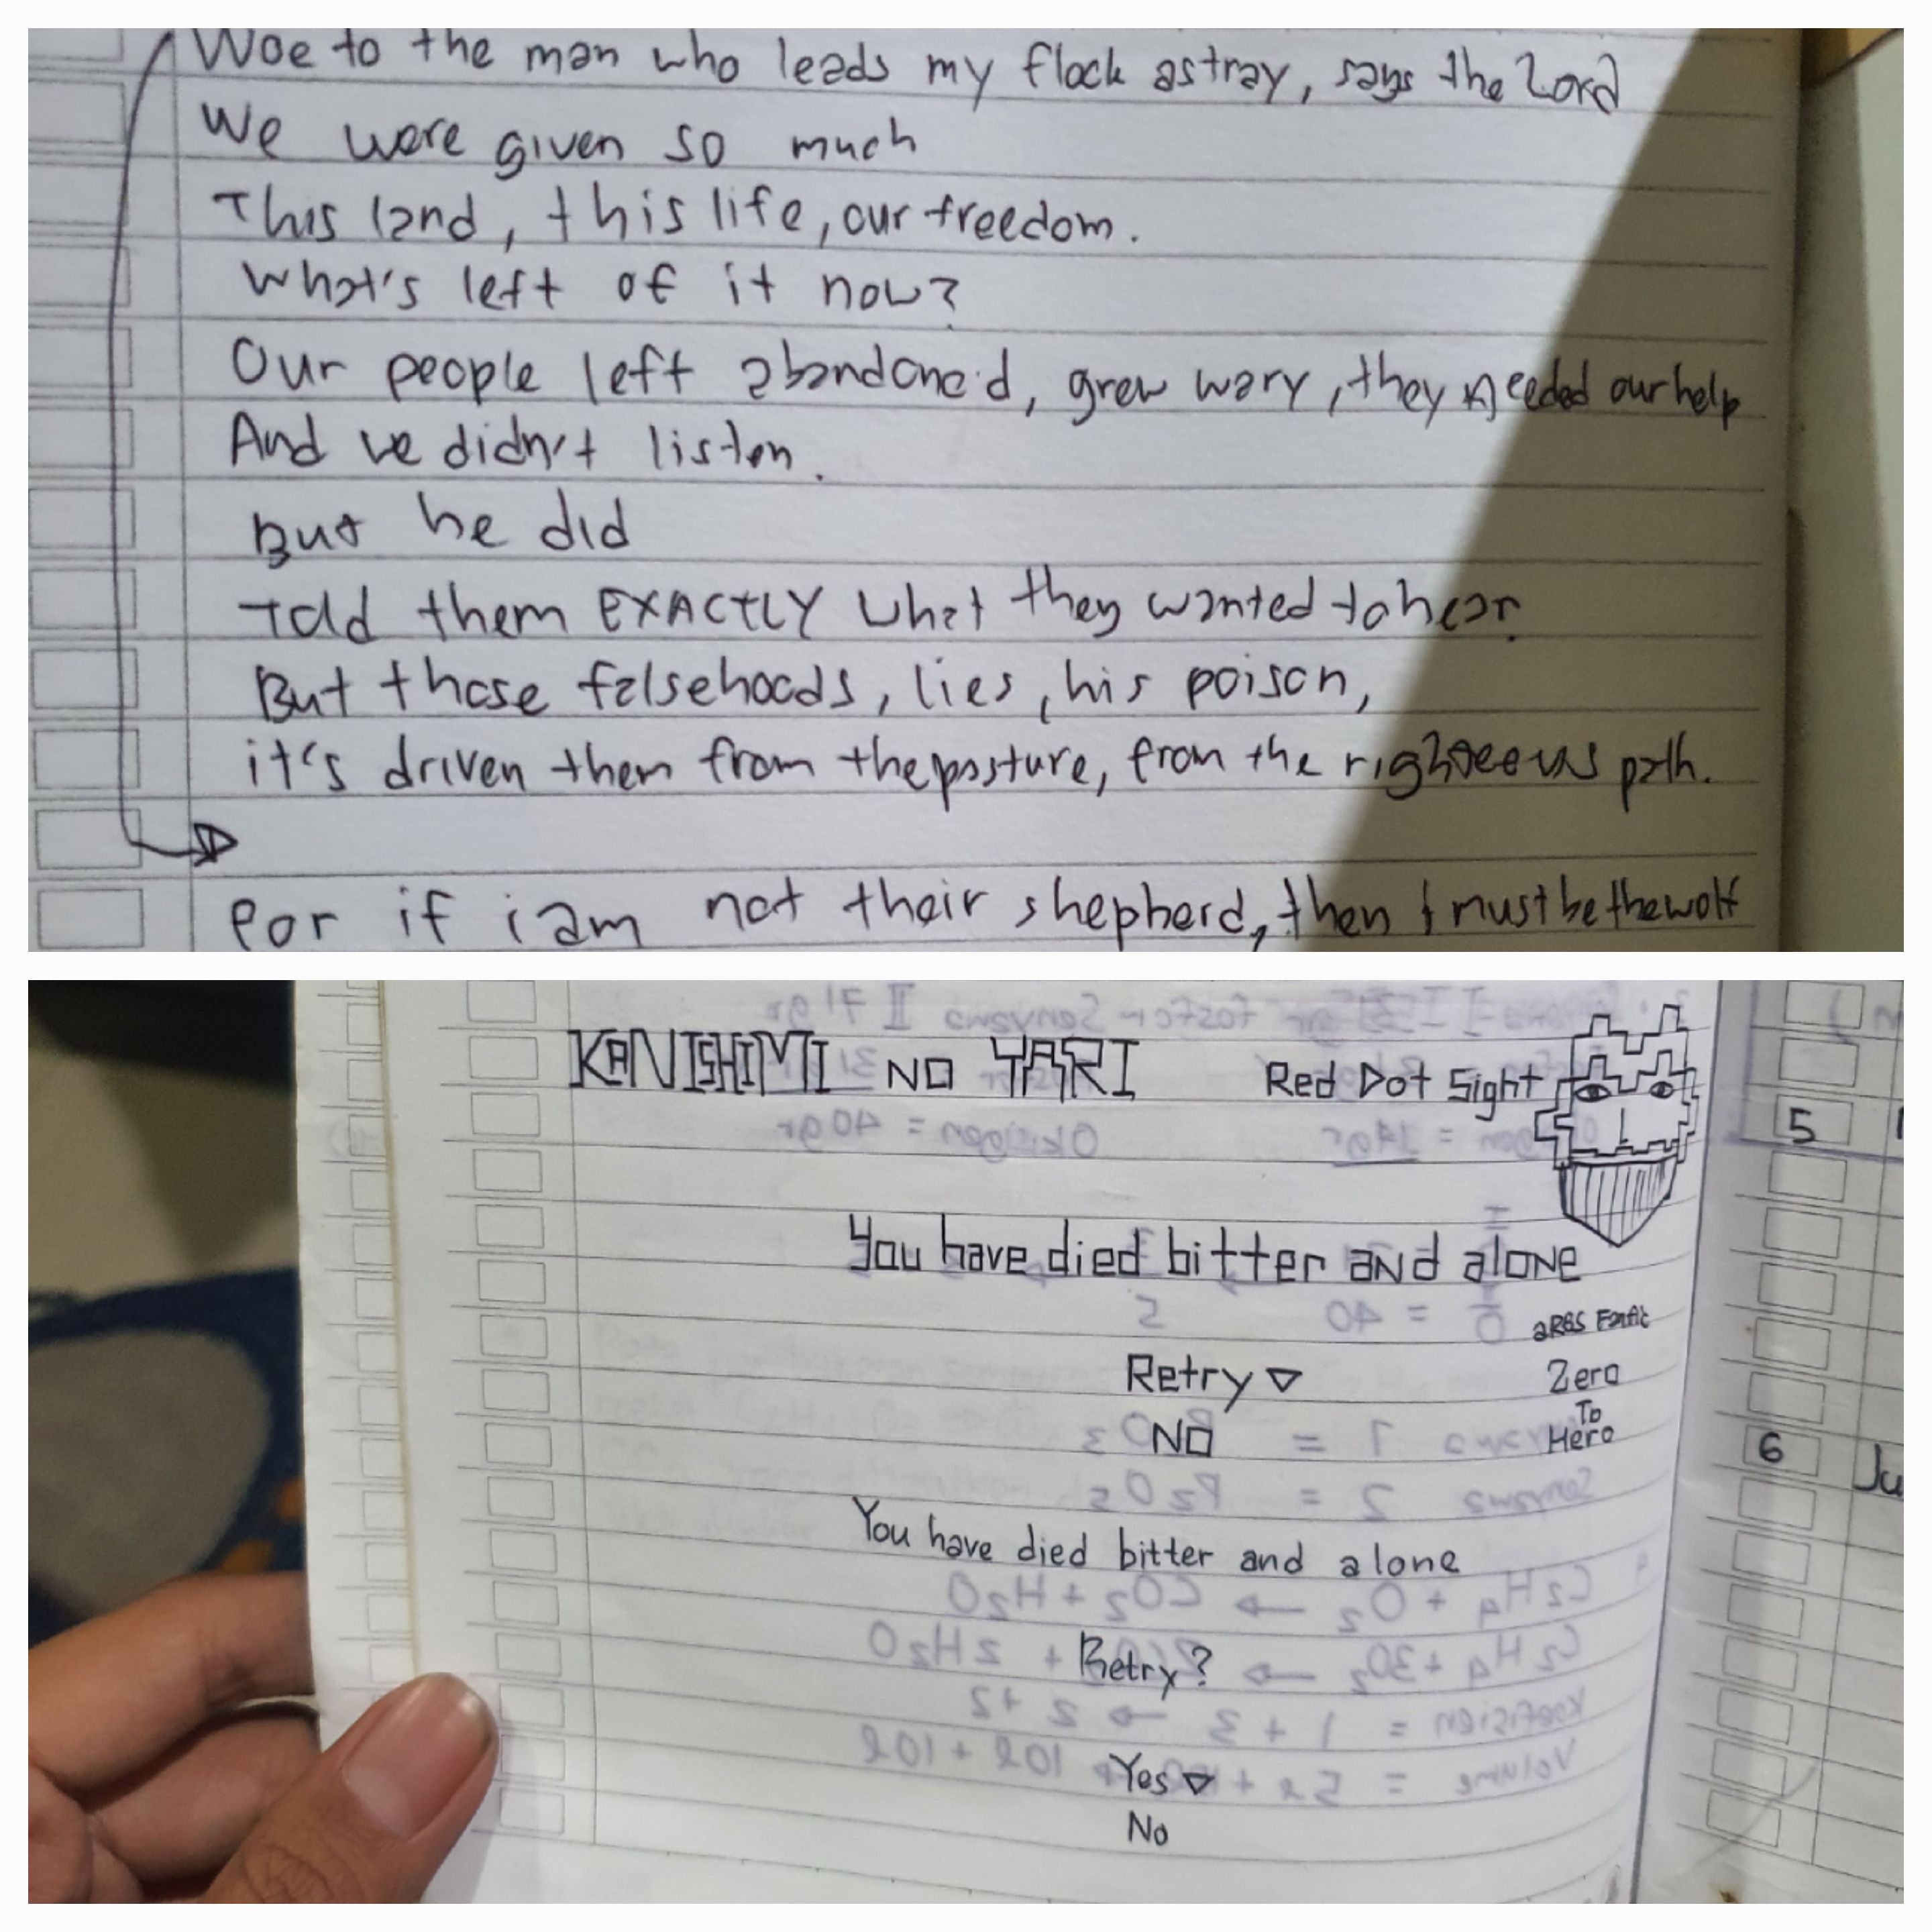 Woe to the man who leads my flock astray, says the Lord
We were given so much
This land, this life, our freedom.
What's left of it now?
Our people left abandone'd, grew wary, they needed our help
And we didn't listen.
But he did
Told them EXACTLY what they wanted to hear.
But those falsehoods, lies, his poison,
it's driven them from the pasture, from the righteeous path.
For if i am not their shepherd, then I must be the wolf
KANISHIMI NO YARI
Red Dot Sight
5
You have died bitter and alone
Retry ▽
Zero
To
NO
Hero
6
Ju
You have died bitter and alone
Retry?
Yes ▽
No